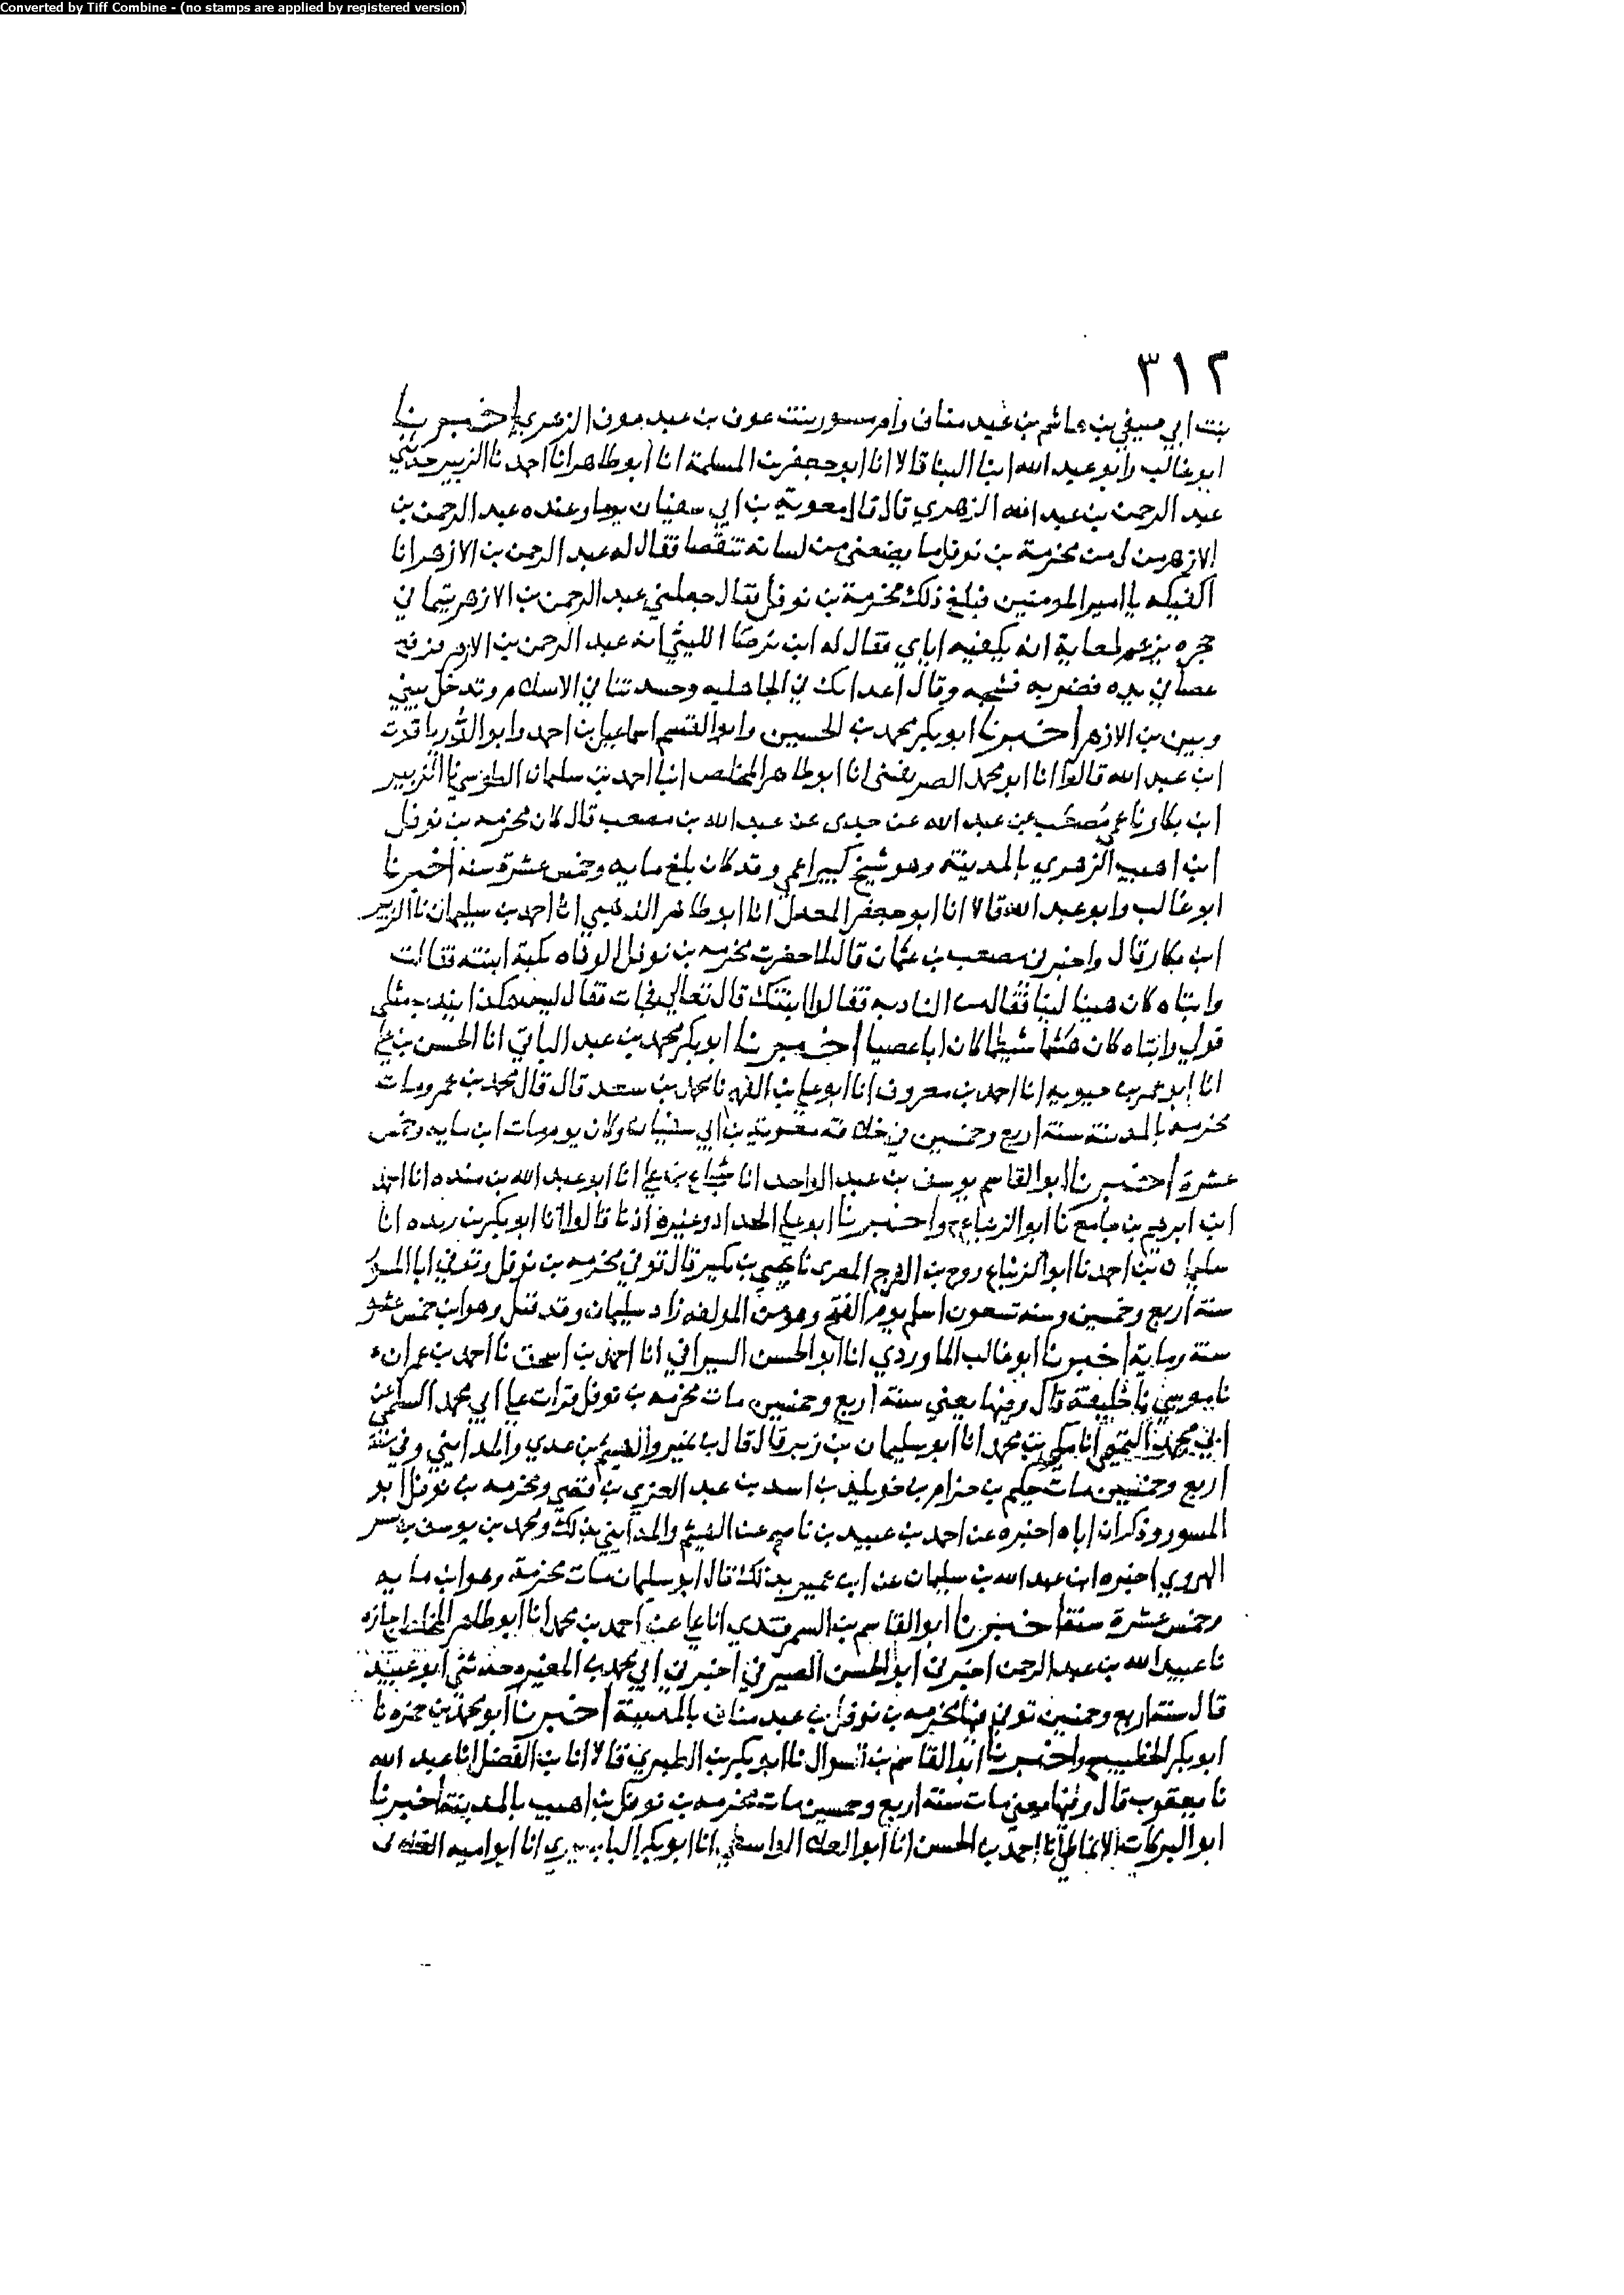 Converted by Tiff Combine - (no stamps are applied by registered version)
٣١٢
بنت ابي صيفي بن هاشم بن عبد مناف وام مسور بنت عوف بن عبد عوف الزهري اخبرنا
ابو غالب وابو عبد الله ابنا البنا قالا انا ابو جعفر بن المسلمة انا ابو طاهر انا احمد نا الزبير حدثني
عبد الرحمن بن عبد الله الزهري قال قال معوية بن ابي سفيان يوما وعنده عبد الرحمن بن
الازهر من لي من مخرمة بن نوفل ما يضعني من لسانه تنقصا فقال له عبد الرحمن بن الازهر انا
اكفيكه يا امير المومنين فبلغ ذلك مخرمة بن نوفل فقال جعلني عبد الرحمن بن الازهر يتيما في
حجره يزعم لمعاية انه يكفيه اياي فقال له ابن برصا الليثي انه عبد الرحمن بن الازهر فرفع
عصا في يده فضربه فشجه وقال اعداك في الجاهليه وحسدتنا في الاسلام وتدخل بيني
وبين بن الازهر اخبرنا ابو بكر محمد بن الحسين وابو القسم اسماعيل بن احمد وابو الدر ياقوت
ابن عبد الله قالوا انا ابو محمد الصريفيني انا ابو طاهر المخلص انبا احمد بن سلمان الطوسي نا الزبير
ابن بكار نا عمي مصعب بن عبد الله عن جدي عن عبد الله بن مصعب قال كان مخرمه بن نوفل
ابن اهيب الزهري بالمدينة وهو شيخ كبير اعمى وقد كان بلغ مايه وخمس عشرة سنه اخبرنا
ابو غالب وابو عبد الله قالا انا ابو جعفر المعدل انا ابو طاهر الذهبي انا احمد بن سليمان نا الزبير
ابن بكار قال واخبرني مصعب بن عثمان قال لما حضرت مخرمه بن نوفل الوفاه بكته ابنته فقالت
وابتاه كان هينا لينا فقال من النادبه فقالوا ابنتك قال تعالي فجات فقال ليس هكذا يندب مثلي
قولي وابتاه كان شيظما كان ابا عصيا اخبرنا ابو بكر محمد بن عبد الباقي انا الحسن بن علي
انا ابو عمر بن حيويه انا احمد بن معروف انا ابو علي بن الفهم نا محمد بن سعد قال قال محمد بن عمر ومات
مخرمه بالمدينة سنة اربع وخمسين في خلافه معوية بن ابي سفيان وكان يوم مات ابن مايه وخمس
عشرة اخبرنا ابو القاسم يوسف بن عبد الواحد انا شجاع بن علي انا ابو عبد الله بن منده انا احمد
ابن ابرهيم بن جامع نا ابو الزنباع ح واخبرنا ابو علي الحداد وغيره اذنا قالوا انا ابو بكر بن ريده انا
سليمان بن احمد نا ابو الزنباع روح بن الفرج المصري نا يحيى بن بكير قال توفي مخرمه بن نوفل ويكنى ابا المسور
سنة اربع وخمسين وسنه تسعون اسلم يوم الفتح وهو من المولفه زاد سليمان وقد قيل وهو ابن خمس عشره
سنة وماية اخبرنا ابو غالب الماوردي انا ابو الحسن السيرافي انا احمد بن اسحق نا احمد بن عمران
نا موسى نا خليفة قال وفيها يعني سنة اربع وخمسين مات مخرمه بن نوفل قرات على ابي محمد السلمي عن
ابي محمد التميمي انا مكي بن محمد انا ابو سليمان بن زبر قال قال بن نمير والهيثم بن عدي والمدايني وفي سنة
اربع وخمسين مات حكيم بن حزام بن خويلد بن اسد بن عبد العزي بن قصي ومخرمه بن نوفل ابو
المسور وذكر ان اباه اخبره عن احمد بن عبيد بن ناصح عن الهيثم والمدايني بذلك ومحمد بن يوسف بن بشر
الهروي اخبره ابن عبد الله بن سليمان عن ابن نمير بذلك قال ابو سليمان مات مخرمة وهو ابن مايه
وخمس عشرة سنة اخبرنا ابو القاسم بن السمرقندي انا علي بن احمد بن محمد انا ابو طاهر المخلص اجازه
نا عبيد الله بن عبد الرحمن اخبرني ابو الحسن الصيرفي اخبرني ابي محمد بن المغيره حدثني ابو عبيد
قال سنة اربع وخمسين توفي فيها مخرمه بن نوفل بن عبد مناف بالمدينة اخبرنا ابو محمد بن حمزه نا
ابو بكر الخطيب ح واخبرنا ابو القاسم بن السمرقندي انا ابو بكر بن الطبري قالا انا بن الفضل انا عبد الله
نا يعقوب قال وفيها يعني مات سنة اربع وخمسين مات مخرمه بن نوفل بن اهيب بالمدينة اخبرنا
ابو البركات الانماطي انا احمد بن الحسن انا ابو العلا الواسطي انا ابو بكر البابسيري انا ابو اميه